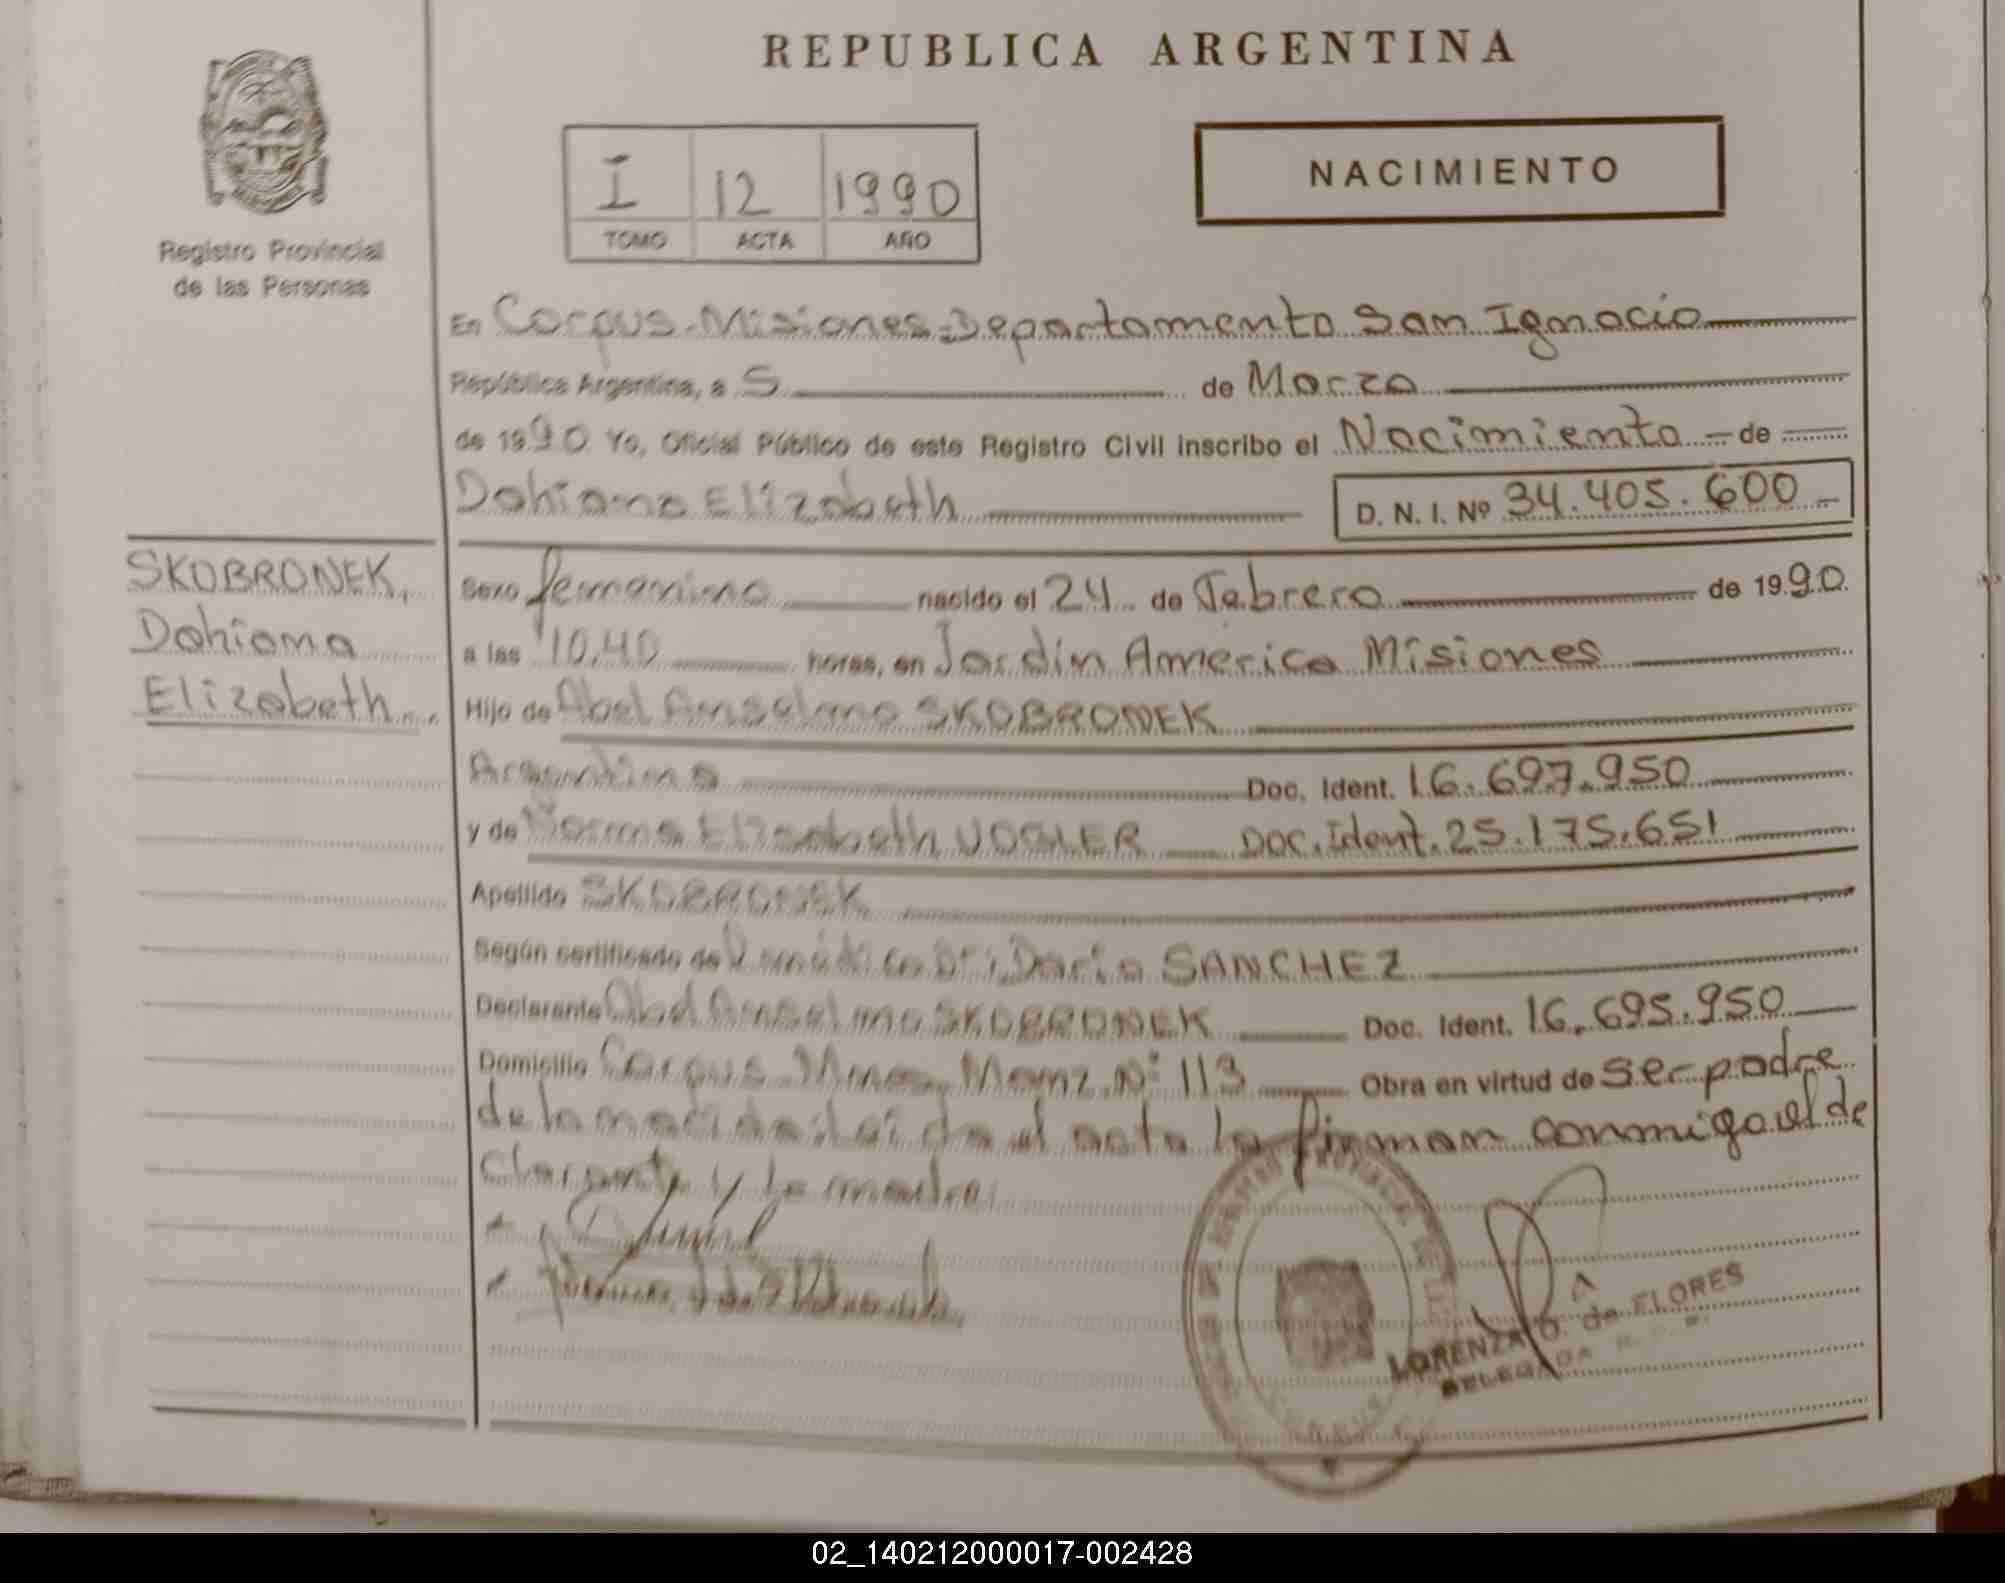 REPUBLICA ARGENTINA
Registro Provincial
de las Personas
I 12 1990
TOMO ACTA AÑO
NACIMIENTO
En Corpus-Misiones-Departamento San Ignacio
República Argentina, a 5 de Marzo
de 1990 Yo, Oficial Público de este Registro Civil inscribo el Nacimiento - de
Dahiana Elizabeth
D. N. I. Nº 34.405.600 -
SKOBRONEK,
Dahiana
Elizabeth..
Sexo femenino nacido el 24 de Febrero de 1990.
a las 10,40 horas, en Jardin America Misiones
Hijo de Abel Anselmo SKOBRONEK
Argentino Doc. Ident. 16.697.950
y de Norma Elizabeth VOGLER Doc. Ident. 25.175.651
Apellido SKOBRONEK
Según certificado de médico Dr. Dario SANCHEZ
Declarante Abel Anselmo SKOBRONEK Doc. Ident. 16.695.950
Domicilio Corpus Mnes. Manz. Nº 113 Obra en virtud de ser padre
de la nacida. Leída el acta la firman conmigo el de
clarante y la madre.
LORENZA O. de FLORES
DELEGADA R. P. P.
02_140212000017-002428